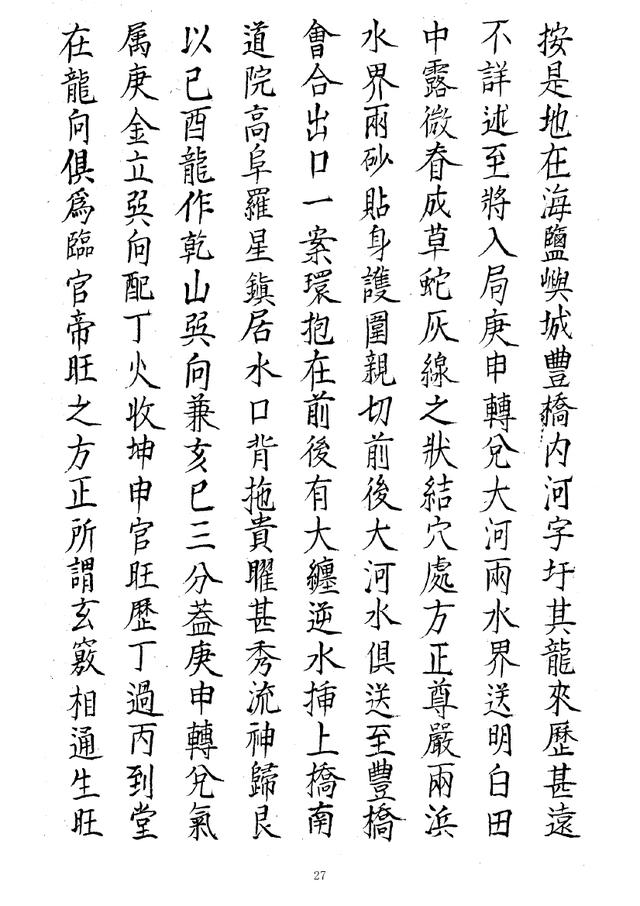 按是地在海鹽嶼城豊橋内河字圩其龍來歷甚遠
不詳述至將入局庚申轉兌大河兩水界送明白田
中露微脊成草蛇灰線之狀結穴處方正尊嚴兩浜
水界兩砂貼身護圍親切前後大河水俱送至豊橋
會合出口一案環抱在前後有大纏逆水揷上橋南
道院高阜羅星鎮居水口背拖貴曜甚秀流神歸艮
以己酉龍作乾山巽向兼亥巳三分葢庚申轉兌氣
属庚金立巽向配丁火收坤申官旺歷丁過丙到堂
在龍向俱爲臨官帝旺之方正所謂玄竅相通生旺
27